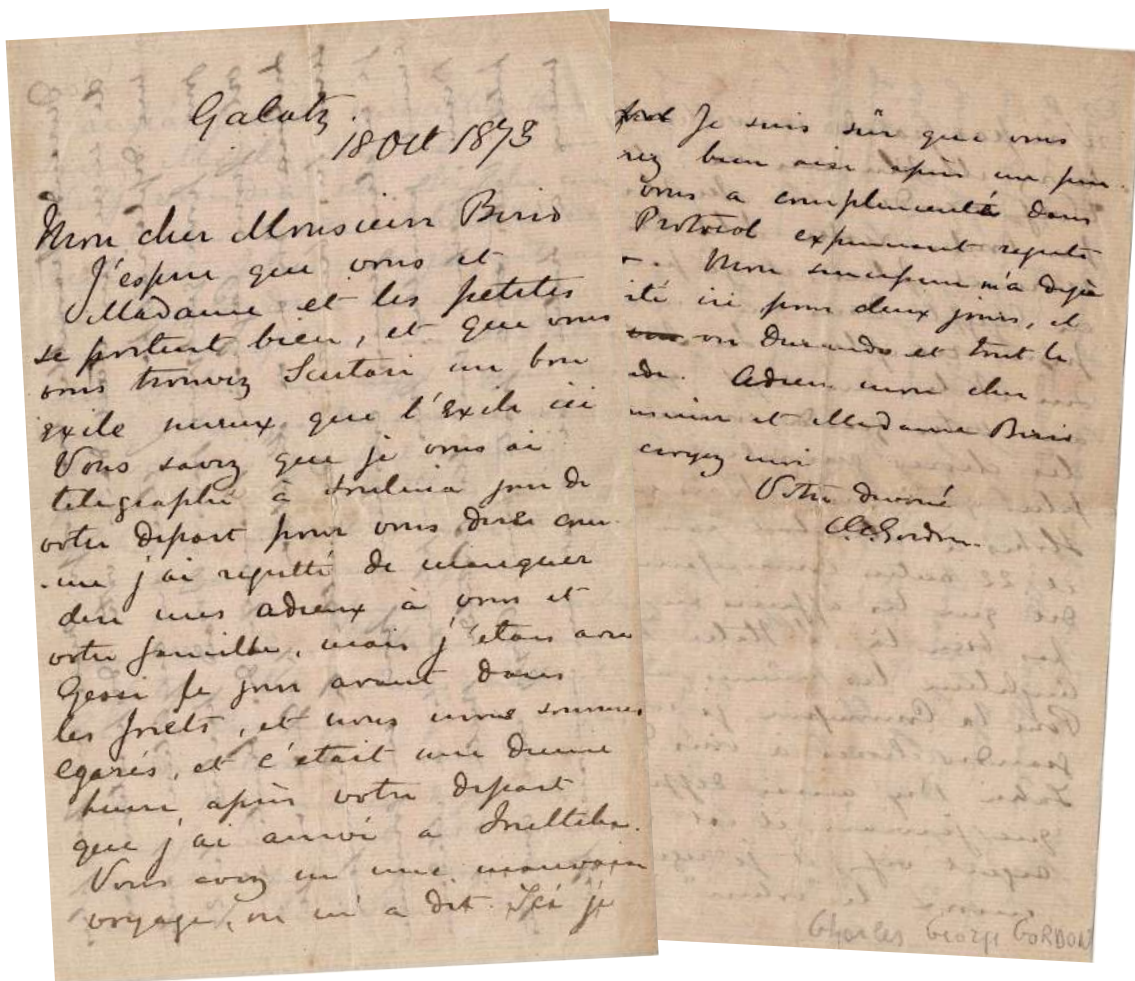 Galatz.
18 Oct 1873
Mon cher Monsieur Biris
J'espere que vous et
Madame et les petites
se portent bien, et que vous
vous trouvez Scutari un bon
exile mieux que l'exile ici
Vous savez que je vous ai
telegraphé à Soulina jour de
votre depart pour vous dire com
-me j'ai regretté de manquer
dire mes adieux à vous et
votre famille, mais j'étais avec
Gessi le jour avant dans
les forêts, et nous nous sommes
egarés, et c'était une demie
heure après votre depart
que j'ai arrivé a
Vous avez eu une mauvaise
voyage, on m'a dit. Ici je
Je suis sûr que vous
rez bien aise après un
vous a complimenté dans
Protocol exprimant regrets
Mon successeur m'a dejà
ité ici pour deux jours, et
on Durando et tout le
de. Adieu mon cher
nsieur et Madame Biris
croyez moi
Votre devoué
C.G.Gordon.
Charles George GORDON